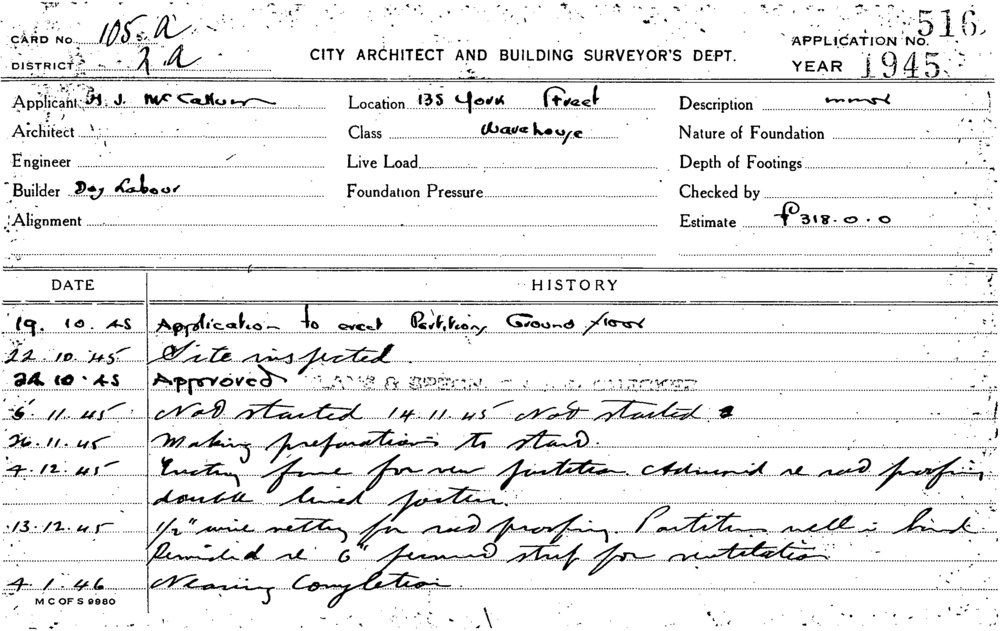 CARD No. 105 A
APPLICATION No. 516
DISTRICT 2 A
CITY ARCHITECT AND BUILDING SURVEYOR'S DEPT.
YEAR 1945
Applicant H. J. McCallum Location 135 York Street Description minor
Architect Class Warehouse Nature of Foundation
Engineer Live Load Depth of Footings
Builder Day Labour Foundation Pressure Checked by
Alignment Estimate £318.0.0
DATE HISTORY
19. 10. 45 Application to erect Partition, Ground floor
22. 10. 45 Site inspected
10. 45 Approved PLANS & SPECN.
6. 11. 45 Not started 14 11. 45 Not started
26. 11. 45 Making preparations to start.
4. 12. 45 Erecting frame for new partition Advised re proofing
double lined
13. 12. 45 1/2" wire netting for proofing Partition well in hand
Reminded re 6" strip for ventilation
4. 1. 46 Nearing Completion
M C OF S 9980